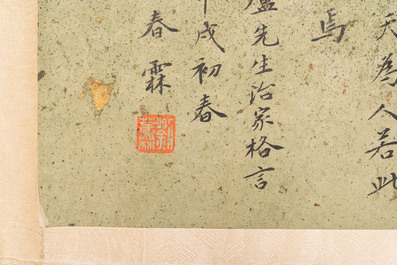 天為人若此
焉
先生治家格言
戌初春
春霖
劉春霖